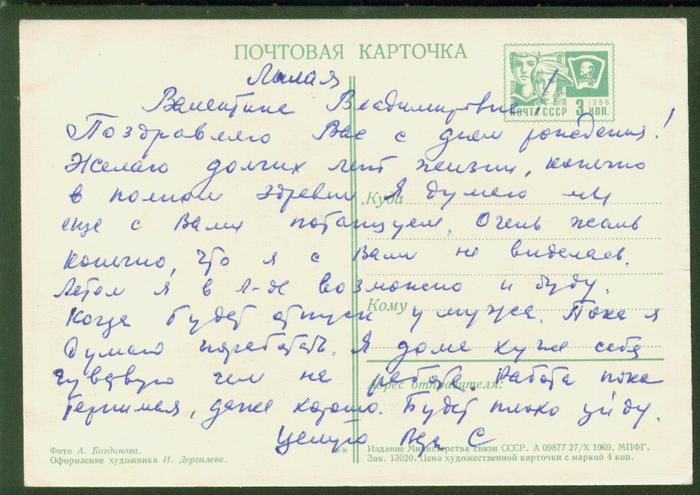 ПОЧТОВАЯ КАРТОЧКА
ПОЧТА СССР
1966
3 КОП.
Милая
Валентина Владимировна!
Поздравляю Вас с днем рождения!
Желаю долгих лет жизни, конечно
в полном здравии. Я думаю мы
еще с Вами потанцуем. Очень жаль
конечно, что я с Вами не виделась.
Летом я в Л-де возможно и буду.
Когда будет отпуск у мужа. Пока я
думаю поработать. Я дома хуже себя
чувствую чем на работе. Работа пока
терпимая, даже хорошо. Будет плохо уйду.
Целую С
Куда
Кому
Адрес отправителя:
Фото А. Богданова.
Оформление художника И. Дергилева.
Издание Министерства связи СССР. А 09877 27/X 1969. МПФГ.
Зак. 13020. Цена художественной карточки с маркой 4 коп.